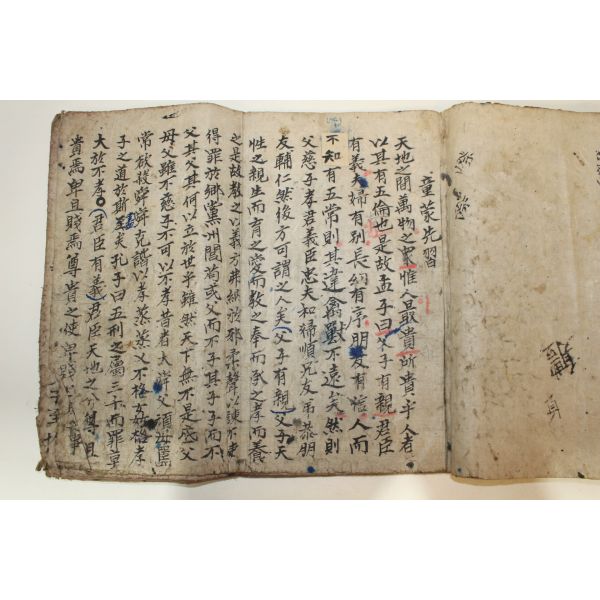 童蒙先習
天地之間萬物之衆惟人最貴所貴乎人者
以其有五倫也是故孟子曰父子有親君臣
有義夫婦有別長幼有序朋友有信人而
不知有五常則其違禽獸不遠矣然則
父慈子孝君義臣忠夫和婦順兄友弟恭朋
友輔仁然後方可謂之人矣父子有親父子天
性之親生而育之愛而敎之奉而承之孝而養
之是故敎之以義方弗納於邪柔聲以諫不使
得罪於鄕黨州閭苟或父而不子其子子而不
父其父其何以立於世乎雖然天下無不是底父
母父雖不慈子不可以不孝昔者大舜父頑母嚚
常欲殺舜舜克諧以孝烝烝乂不格姦孝
子之道於斯至矣孔子曰五刑之屬三千而罪莫
大於不孝○君臣有義君臣天地之分尊且
貴焉卑且賤焉尊貴之使卑賤